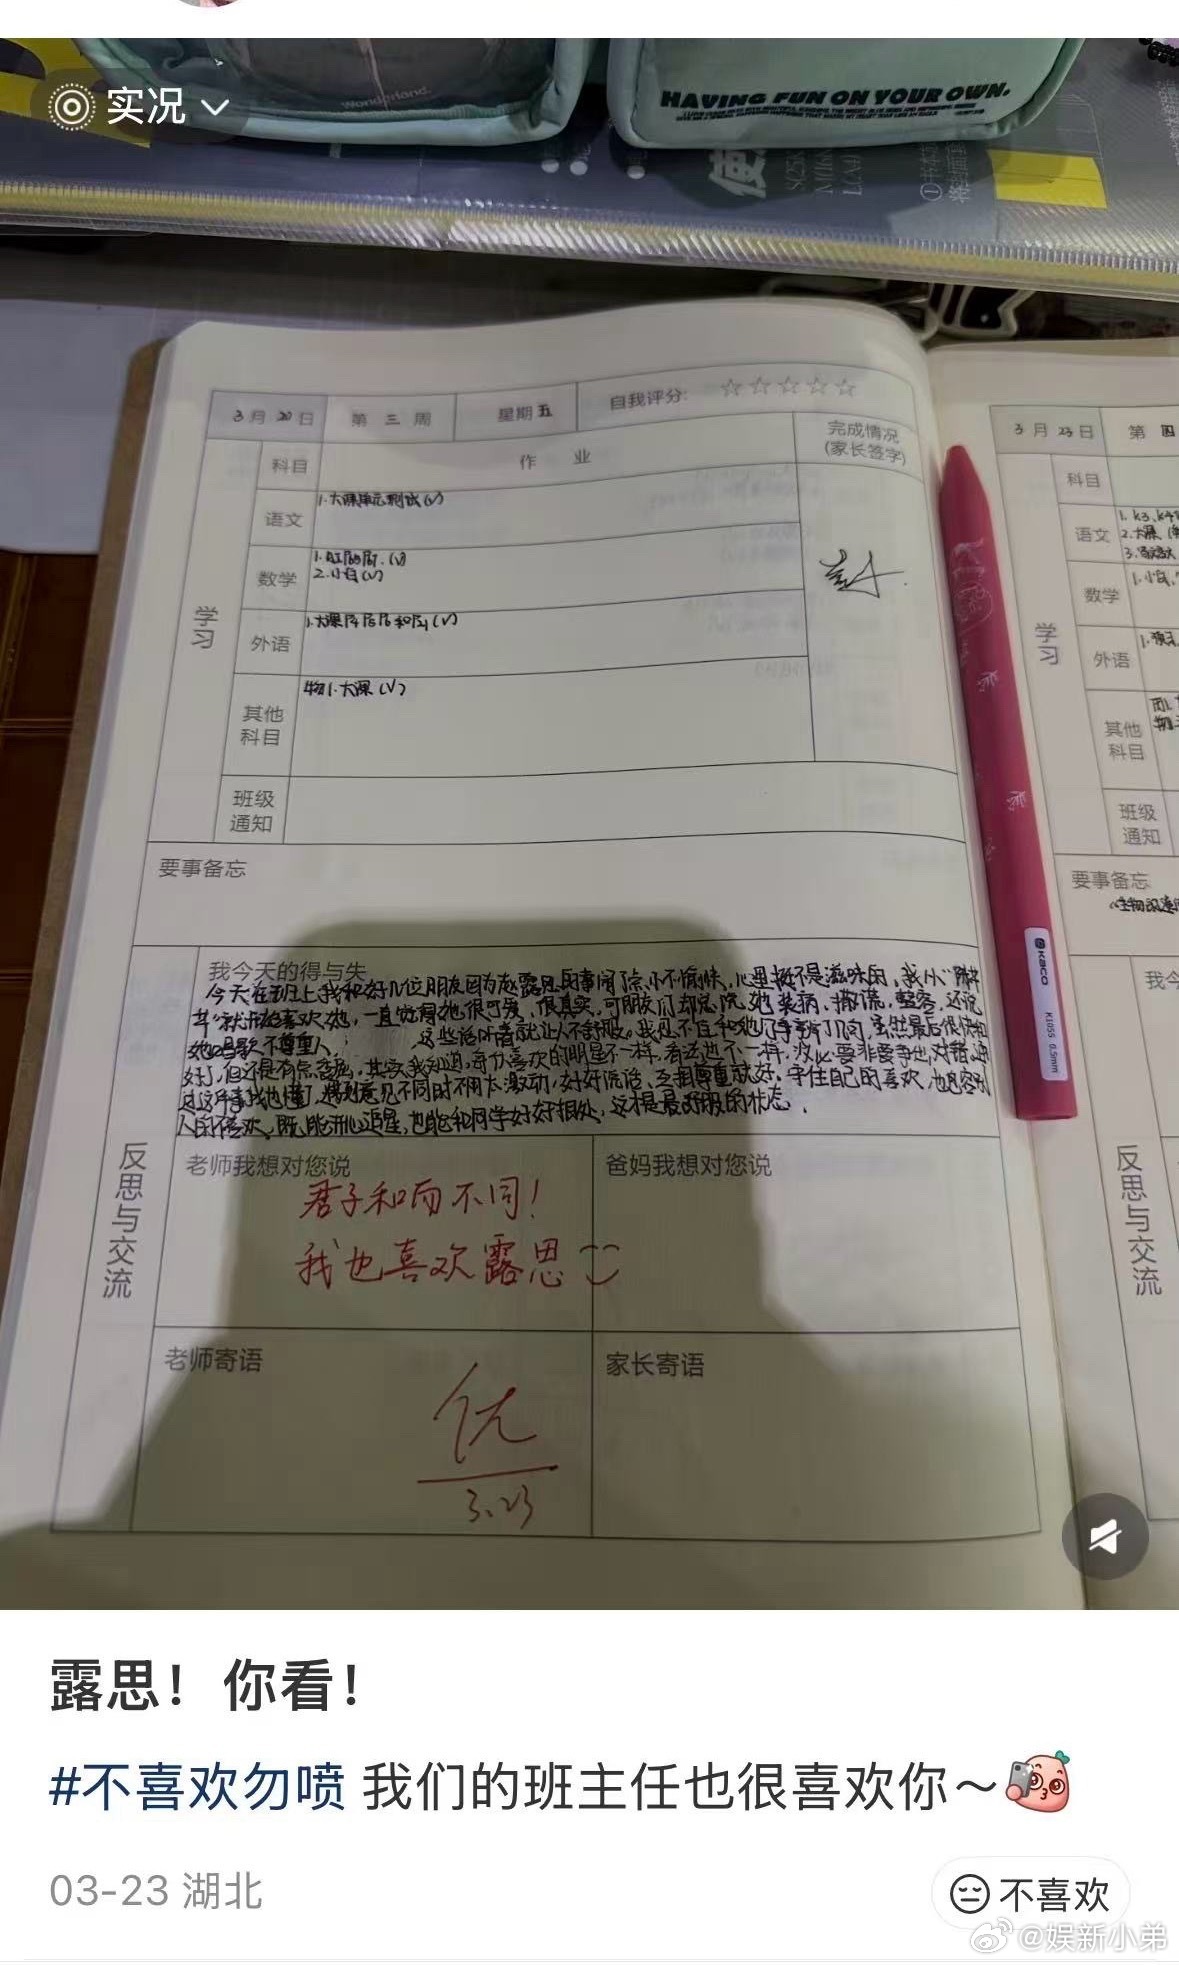 实况
Wonderland.
HAVING FUN ON YOUR OWN.
3月20日 第三周 星期五 自我评分: ☆☆☆☆☆
科目 作业 完成情况
(家长签字)
学习
语文 1.大课单元测试(√)
数学
2.小白(√)
外语
其他科目 物1.大课(√)
班级通知
要事备忘
反思与交流
我今天的得与失
今天在班上我和好几位朋友因为赵露思的事闹了点小不愉快,心里挺不是滋味的,我从
就开始喜欢她,一直觉得她很可爱,很真实,可朋友们却总说她装病,撒谎,整容,还说
她唱歌不尊重人, 这些话听着就让人不舒服,我忍不住和他们争辩了几句,虽然最后很快和
好了,但还是有点委屈,其实我知道,每个人喜欢的明星不一样,看法也不一样,没必要非要争出对错,
这件事我也懂了,遇到意见不同时不用太激动,好好说话,互相尊重就好,守住自己的喜欢,也包容别
人的不喜欢,既能开心追星,也能和同学好好相处,这才是最舒服的状态。
老师我想对您说
君子和而不同!
我也喜欢露思
爸妈我想对您说
老师寄语
优
3.23
家长寄语
3月23日 第四
科目
语文
数学
外语
其他科目
班级通知
要事备忘
学习
我今
反思与交流
KACO
K1055 0.5mm
露思!你看!
#不喜欢勿喷 我们的班主任也很喜欢你～
03-23 湖北
不喜欢
@娱新小弟